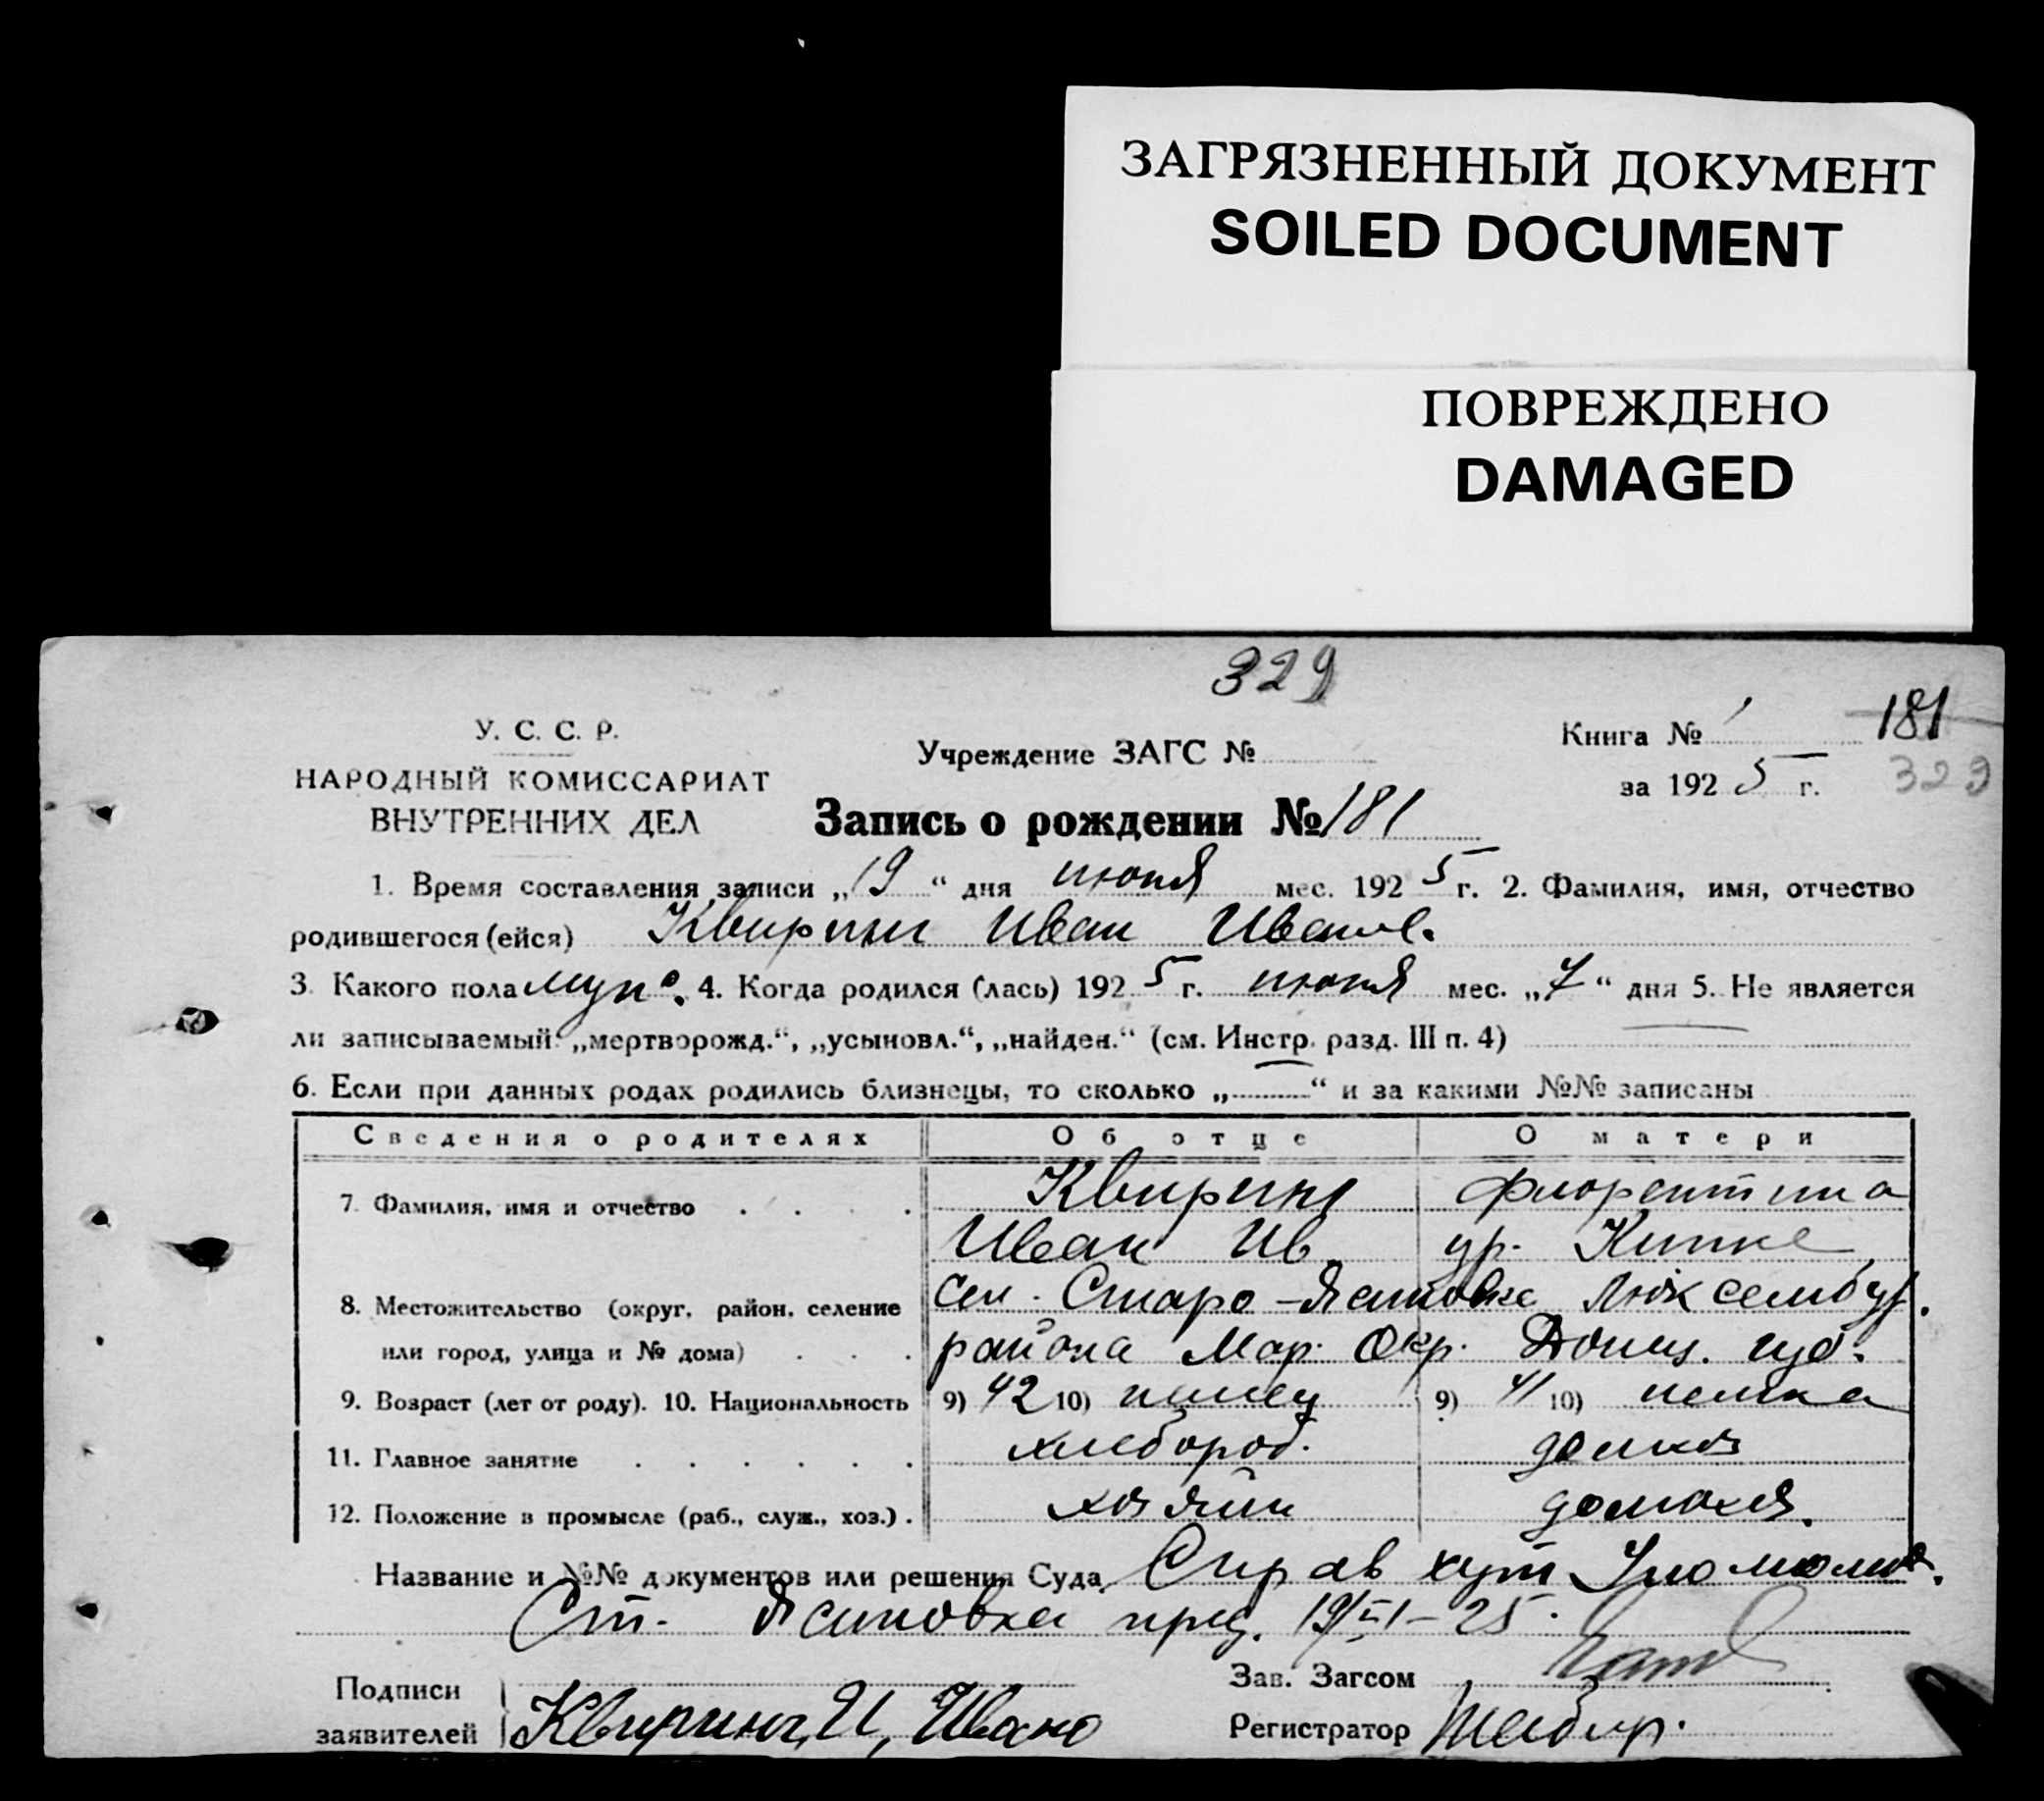 ЗАГРЯЗНЕННЫЙ ДОКУМЕНТ
SOILED DOCUMENT
ПОВРЕЖДЕНО
DAMAGED
329
У. С. С. Р.
НАРОДНЫЙ КОМИССАРИАТ
ВНУТРЕННИХ ДЕЛ
Учреждение ЗАГС №
Книга № 1
181
за 1925 г.
329
Запись о рождении № 181
1. Время составления записи „19“ дня июня мес. 1925 г. 2. Фамилия, имя, отчество
родившегося (ейся) Квиринг Иван Иванов.
3. Какого пола муж. 4. Когда родился (лась) 1925 г. июня мес. „7“ дня 5. Не является
ли записываемый „мертворожд.“, „усыновл.“, „найден.“ (см. Инстр. разд. III п. 4) —
6. Если при данных родах родились близнецы, то сколько „—“ и за какими №№ записаны
Сведения о родителях Об отце О матери
7. Фамилия, имя и отчество Квиринг Флорентина
Иван Ив. ур.
8. Местожительство (округ, район, селение сел. Старо-Ясиновке Люксембург.
или город, улица и № дома) района Мар. Окр. Донец. губ.
9. Возраст (лет от роду). 10. Национальность 9) 42 10) немец 9) 41 10) немка
11. Главное занятие хлебороб. домхоз
12. Положение в промысле (раб., служ., хоз.) хозяин домохоз.
Название и №№ документов или решения Суда Справ хут
Ст. Ясиновка пред. 19/VI–25.
Подписи
заявителей Квиринг, И, Ивано
Зав. Загсом
Регистратор